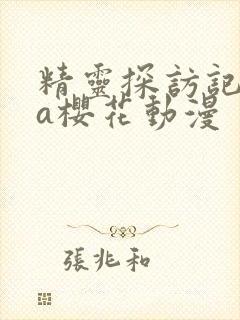 精靈探訪記
a櫻花動漫
張兆和